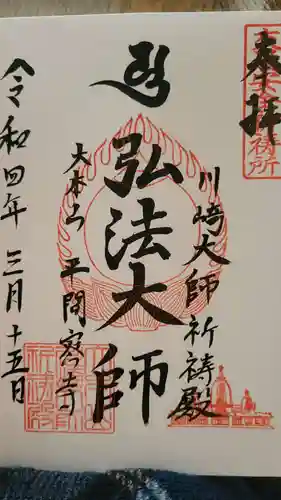 奉拝
川崎大師祈祷殿
弘法大師
大本山 平間寺
令和四年三月十五日